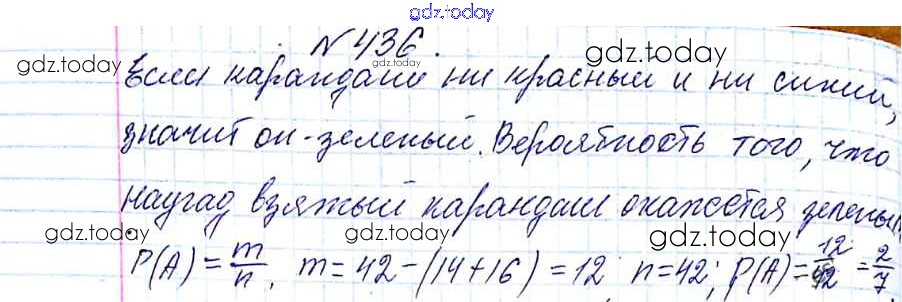 gdz.today
№436.
gdz.today gdz.today gdz.today
Если карандаш ни красный и ни синий,
значит он - зеленый. Вероятность того, что
gdz.today gdz.today gdz.today
наугад взяжый карандаш окажется зеленым
gdz.today gdz.today gdz.today
P(A) = m/n. m = 42 - (14+16) = 12 n = 42; P(A) = 12/42 = 2/7